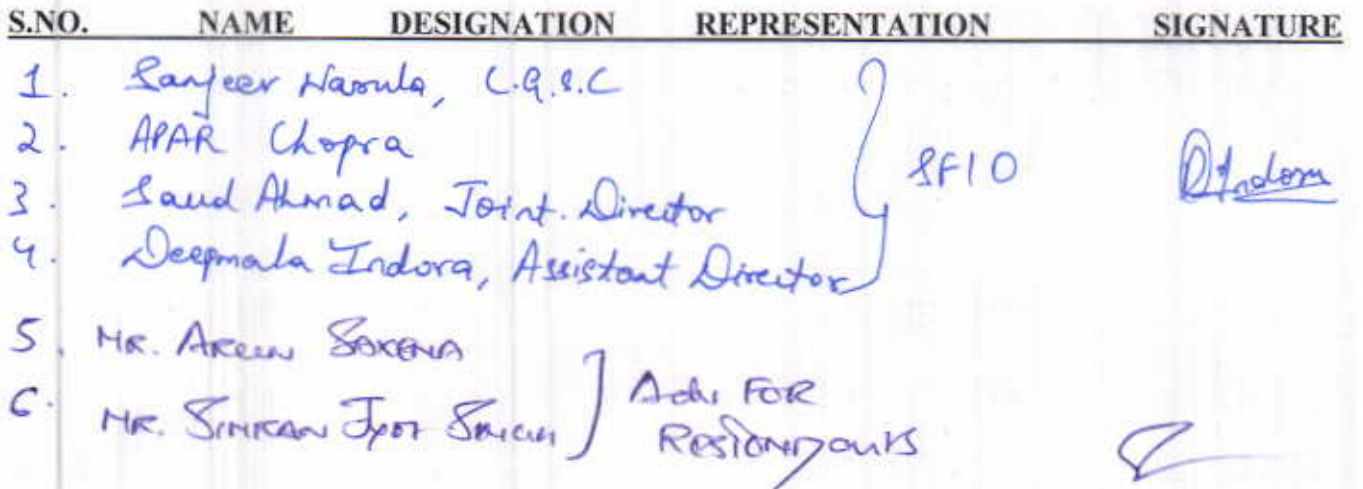 S.NO. NAME DESIGNATION REPRESENTATION SIGNATURE
1. Sanjeev Narula, C.G.S.C
2. APAR Chopra
SFIO
3. Saud Ahmad, Joint. Director
4. Deepmala Indora, Assistant Director
5. MR. ARUN SAXENA
6. MR. SIMRAN JYOT SINGH
Adv. FOR
RESPONDENTS